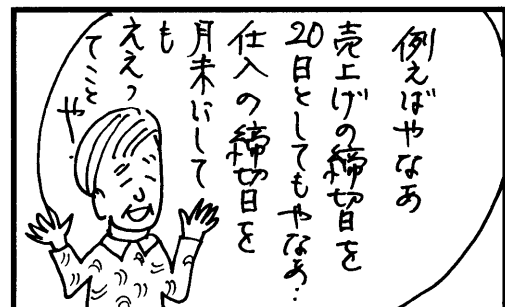 例えばやなあ
売上げの締切日を
20日としてもやなあ…
仕入の締切日を
月末にして
も
ええっ
てこと
や…